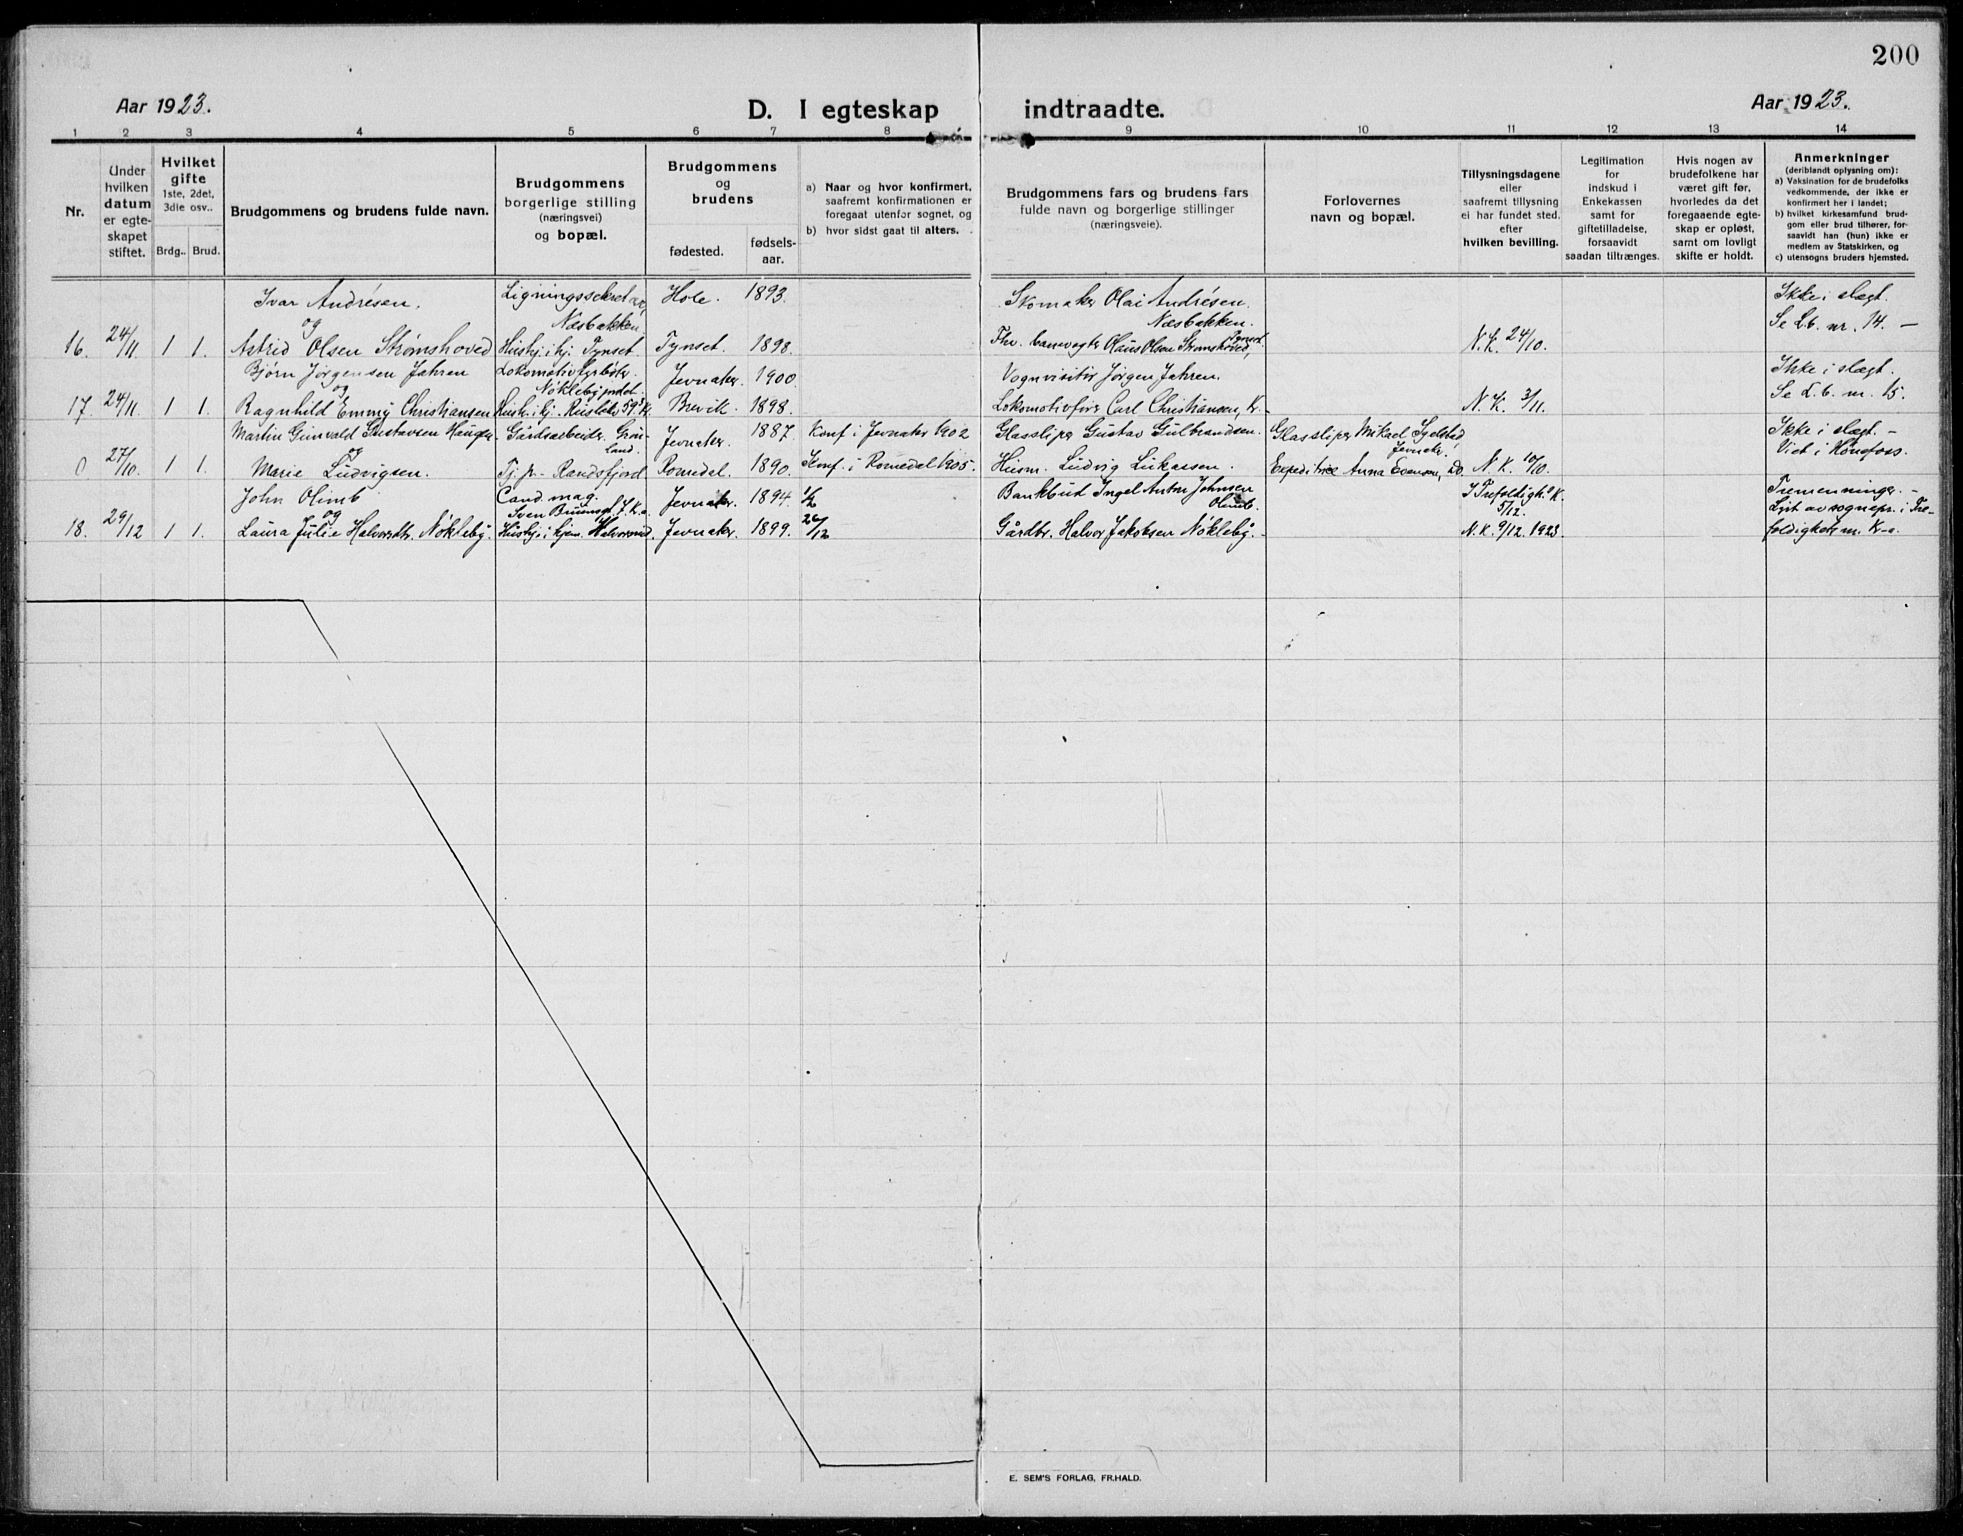 200
Aar 1923.
D. I egteskap indtraadte.
Aar 1923.
1 2 3 4 5 6 7 8 9 10 11 12 13 14
Nr.
Under hvilken datum er egte-skapet stiftet.
Hvilket gifte 1ste, 2det, 3die osv..
Brdg.. Brud.
Brudgommens og brudens fulde navn.
Brudgommens borgerlige stilling (næringsvei) og bopæl.
Brudgommens og brudens
fødested.
fødsels-aar.
a) Naar og hvor konfirmert, saafremt konfirmationen er foregaat utenfor sognet, og
b) hvor sidst gaat til alters.
Brudgommens fars og brudens fars fulde navn og borgerlige stillinger (næringsveie).
Forlovernes navn og bopæl.
Tillysningsdagene eller saafremt tillysning ei har fundet sted. efter hvilken bevilling.
Legitimation for indskud i Enkekassen samt for giftetilladelse, forsaavidt saadan tiltrænges.
Hvis nogen av brudefolkene har været gift før, hvorledes da det foregaaende egte-skap er opløst, samt om lovligt skifte er holdt.
Anmerkninger (deriblandt oplysning om):
a) Vaksination for de brudefolks vedkommende, der ikke er konfirmert her i landet;
b) hvilket kirkesamfund brud-gom eller brud tilhører, for-saavidt han (hun) ikke er medlem av Statskirken, og
c) utensogns bruders hjemsted.
Ivar Andrésen. Ligningssekretær, Hole. 1893. Skomaker Olai Andrésen. Ikke i slegt.
og Næsbakken. Næsbakken. Se Lb. nr. 14. —
16. 24/11 1 1. Astrid Olsen Strømshoved Hushj. i hj. Tynset. Tynset. 1898. Fhv. banevogter Olaus Olsen Strømshoved, Tynset. N.K. 24/10.
Bjørn Jørgensen Jahren Lokomotivfyrbøter. Jevnaker. 1900. Vognvisitør Jørgen Jahren. Ikke i slegt.
og Nøklebyjordet.
17. 24/11. 1 1. Ragnhild Emmy Christiansen Brevik. 1898. Lokomotivfører Carl Christiansen, Kr. N.K. 3/11. Se Lb. nr. 15.
Martin Gunvald Gustavsen Haugen Gårdsarbeider. Grön-land. Jevnaker. 1887. Konf. i Jevnaker 1902 Glassliper Gustav Gulbrandsen. Glassliper Mikael Jevnaker. Ikke i slegt. —
og
0 27/10. 1 1. Marie Ludvigsen. Tj. p. Randsfjord. Romedal. 1890. Konf. i Romedal 1905. Husm. Ludvig Lukassen. Expeditrice Anna Evensen, do. N.K. 10/10. Viet i Hönefoss.
John Olimb Cand. mag. Jevnaker. 1894. 1/2 Bankbud Ingel Anton Johnsen Olimb. I Trefoldigh. K. 5/12. Tremenninger. —
og Lyst av sognepr. i Tre-
18. 29/12 1 1. Laura Julie Halvorsdtr. Nøkleby. Hushj. i hjem. Jevnaker. 1899. 26/12 Gårdbr. Halvor Jakobsen Nøkleby. N.K. 9/12. 1923. foldighets m. Kr-a.
E. SEM'S FORLAG, FR.HALD.